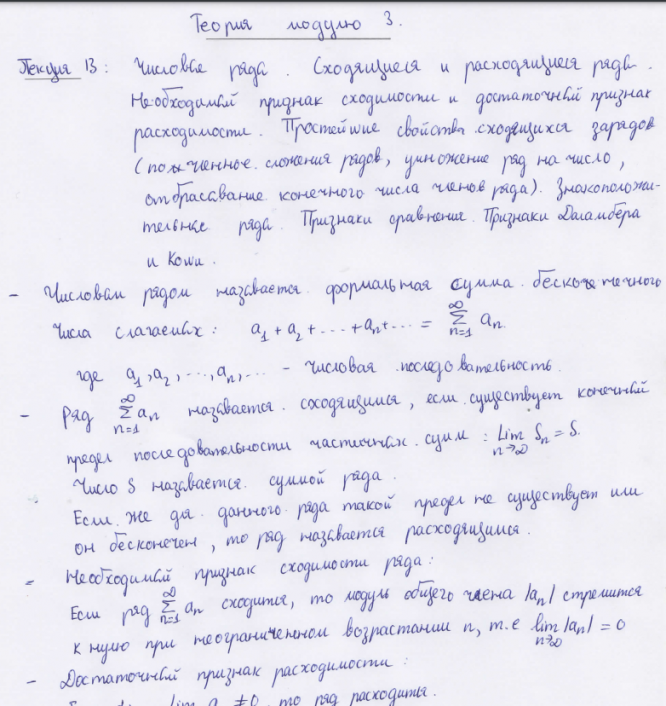 Теория модулю 3.
Лекция 13: Числовые ряда. Сходящиеся и расходящиеся ряда.
Необходимый признак сходимости и достаточный признак
расходимости. Простейшие свойства сходящихся зарядов
(почленное сложения рядов, умножение ряд на число,
отбрасавание конечного числа членов ряда). Знакоположи-
тельные ряда. Признаки сравнения. Признаки Даламбера
и Коши.
- Числовам рядом називается формальная сумма бесконечного
числа слагаемых: a₁ + a₂ + ... + aₙ + ... = ∑_{n=1}^{∞} aₙ.
где a₁, a₂, ..., aₙ, ... - числовая последовательность.
- Ряд ∑_{n=1}^{∞} aₙ називается сходящимся, если существует конечный
предел последовательности частичных сумм: lim_{n→∞} Sₙ = S.
Число S називается суммой ряда.
Если же дя данного ряда такой предел не существует или
он бесконечен, то ряд називается расходящимся.
- Необходимый признак сходимости ряда:
Если ряд ∑_{n=1}^{∞} aₙ сходится, то модуль общего члена |aₙ| стремится
к нулю при неограниченном возрастании n, т.е lim_{n→∞} |aₙ| = 0
- Достаточный признак расходимости:
lim aₙ ≠ 0, то ряд расходится.